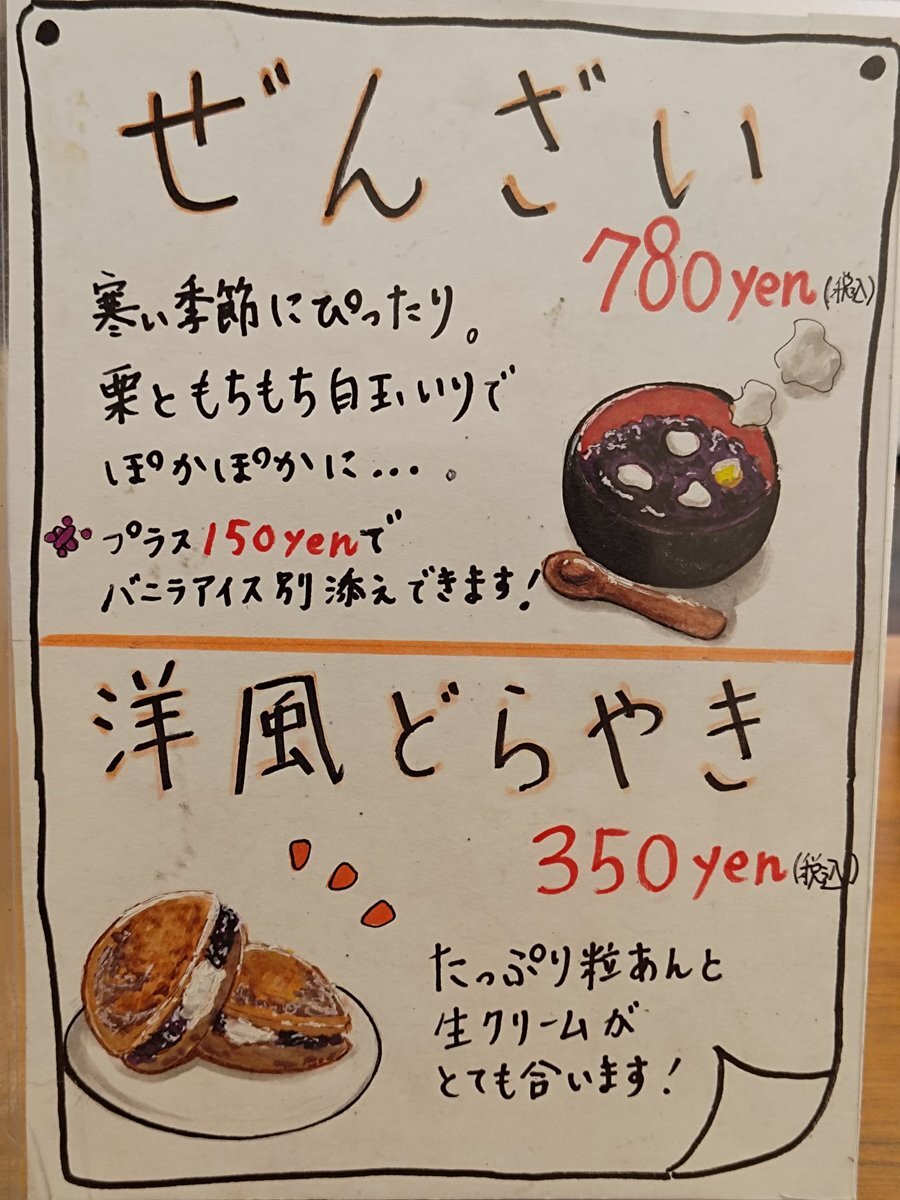 ぜんざい
780yen(税込)
寒い季節にぴったり。
栗ともちもち白玉いりで
ぽかぽかに...。
プラス150yenで
バニラアイス別添えできます!
洋風どらやき
350yen(税込)
たっぷり粒あんと
生クリームが
とても合います!